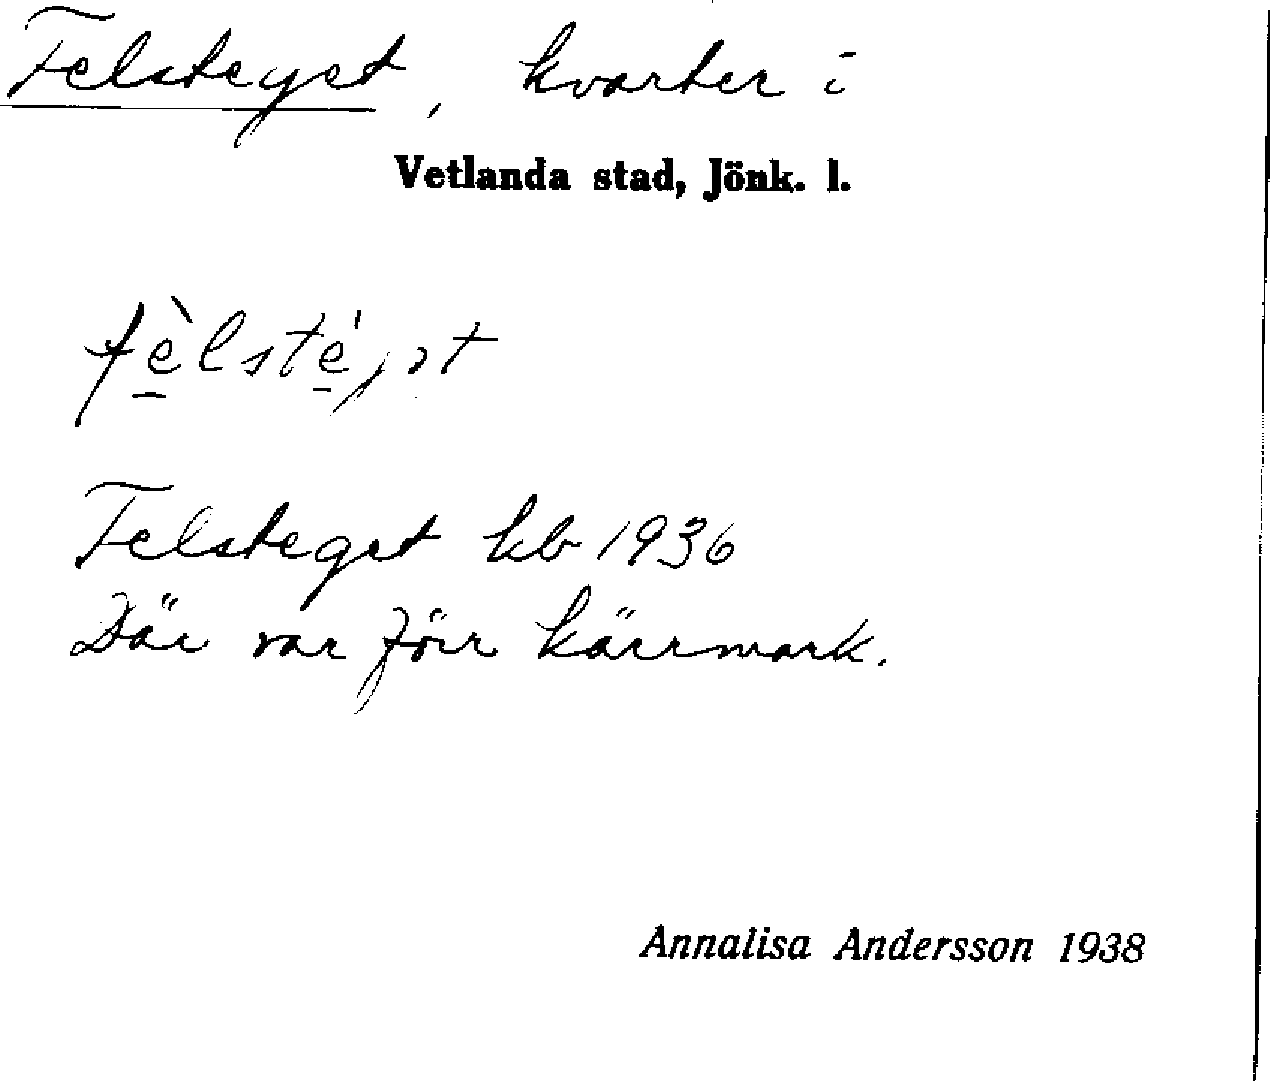 Felsteget, kvarter i
Vetlanda stad, Jönk. l.
fè̲lsté̲jət
Felsteget kb 1936
Där var förr kärrmark.
Annalisa Andersson 1938